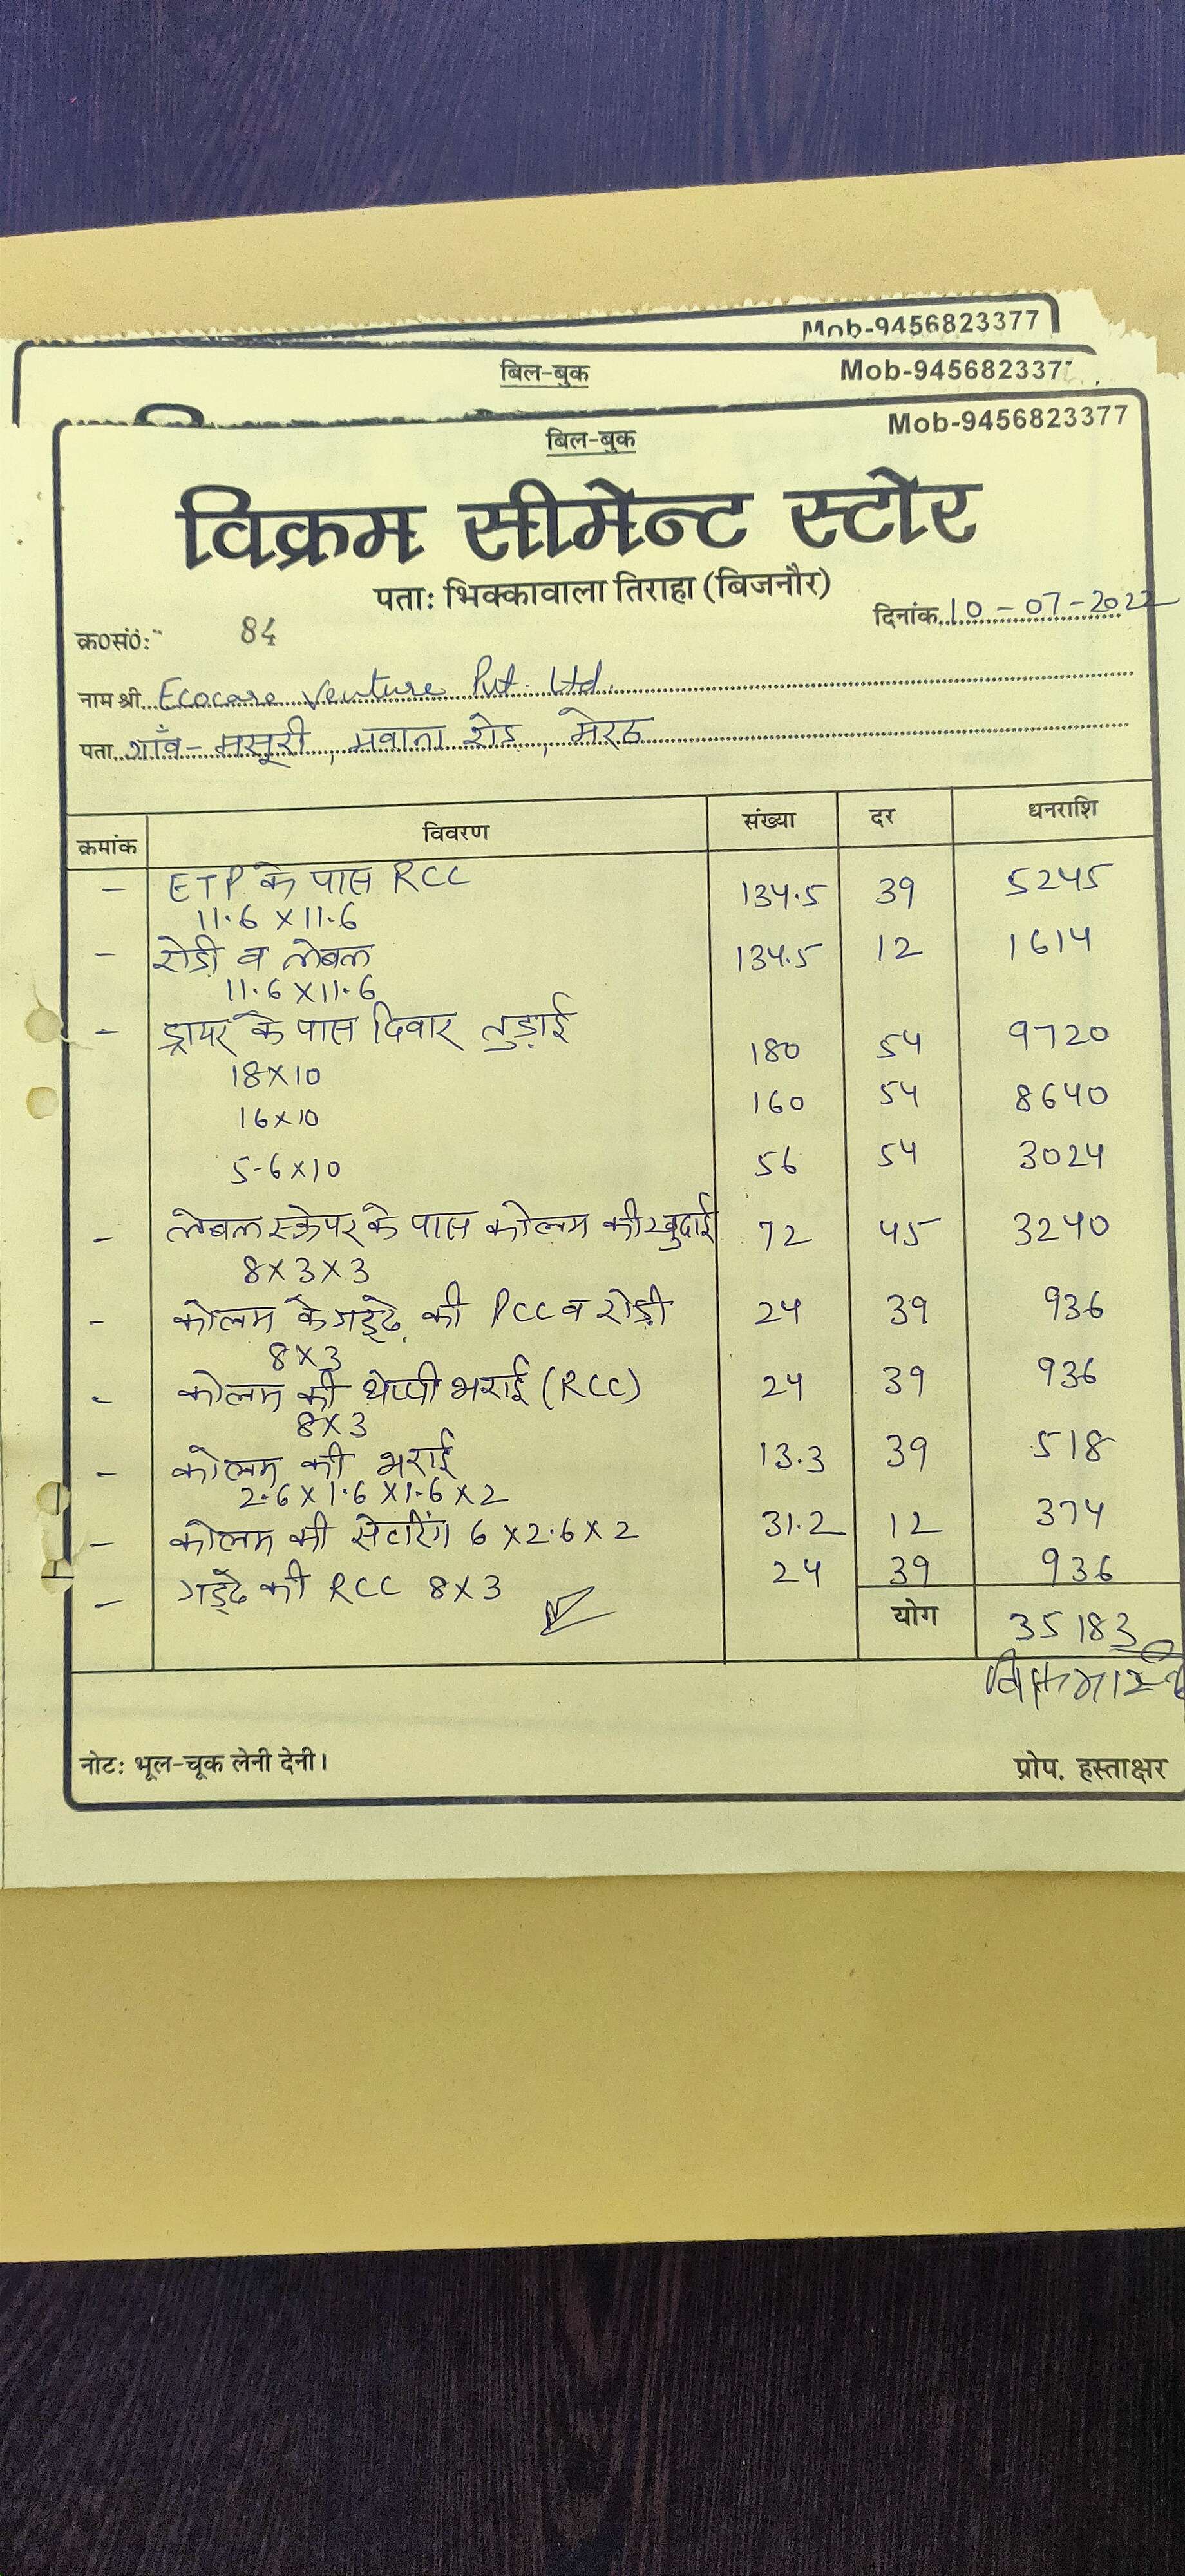 Mob-9456823377
बिल-बुक Mob-945682337
बिल-बुक Mob-9456823377
विक्रम सीमेन्ट स्टोर
पता: भिक्कावाला तिराहा (बिजनौर)
क्र0सं0: 84 दिनांक 10-07-2022
नाम श्री Ecocare Venture Pvt. Ltd.
पता गाँव- मसूरी, मवाना रोड, मेरठ
क्रमांक विवरण संख्या दर धनराशि
- ETP के पास RCC 134.5 39 5245
11.6 X 11.6
- रोडी व लेबल 134.5 12 1614
11.6 X 11.6
- ड्रायर के पास दिवार तुड़ाई
18X10 180 54 9720
16X10 160 54 8640
5-6X10 56 54 3024
- लेबल स्क्रेपर के पास कोलम की खुदाई 72 45 3240
8X3X3
- कोलम के गड्ढे की PCC व रोड़ी 24 39 936
8X3
- कोलम की थेप्पी भराई (RCC) 24 39 936
8X3
- कोलम की भराई 13.3 39 518
2.6 X 1.6 X 1.6 X 2
- कोलम की सेटरिंग 6 X 2.6 X 2 31.2 12 374
- गड्ढे की RCC 8X3 24 39 936
योग 35183
नोट: भूल-चूक लेनी देनी।
प्रोप. हस्ताक्षर